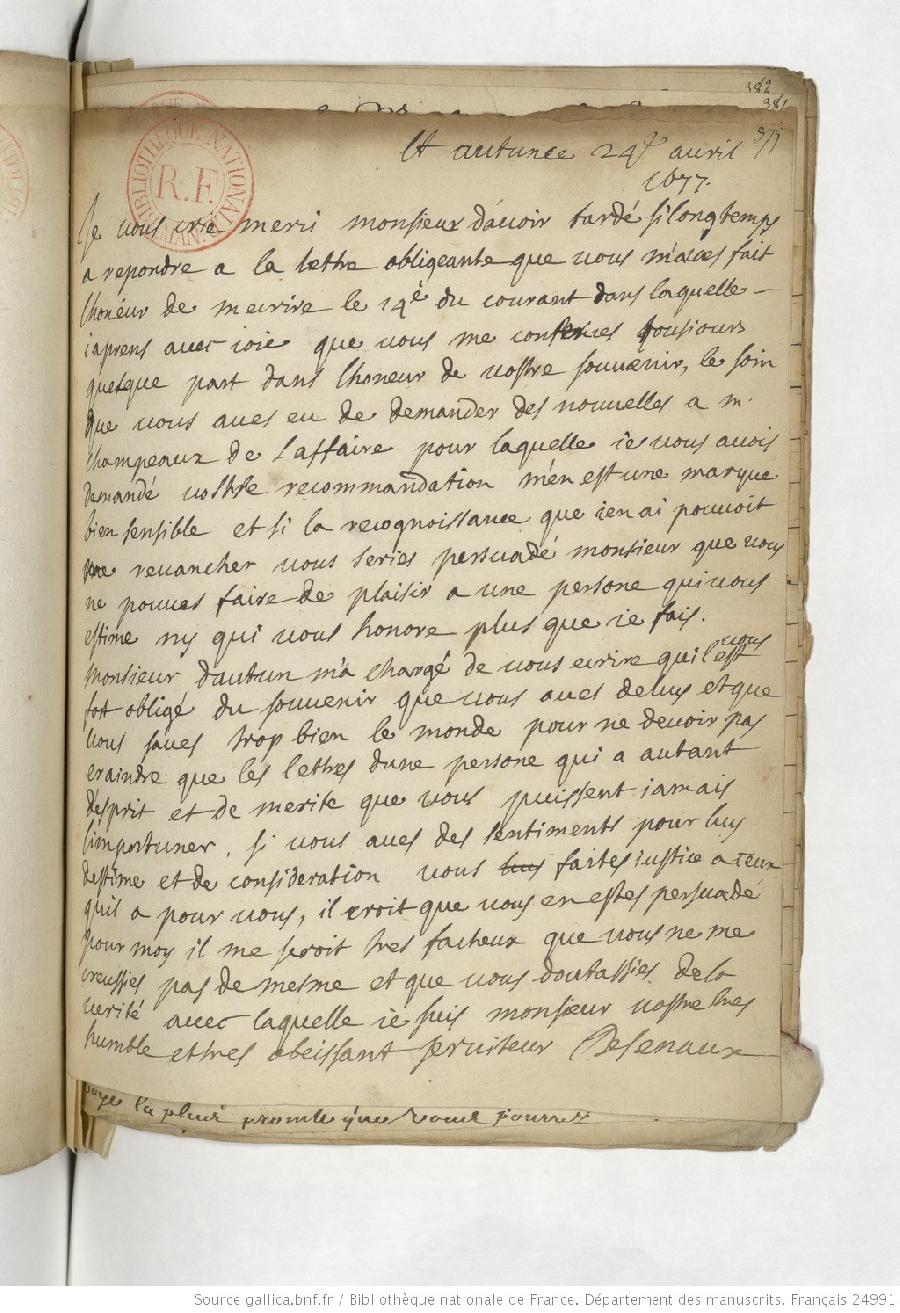 382
381
379
A autun ce 24e auril
1677.
BIBLIOTHEQUE NATIONALE
R.F.
MAN.
Je vous crie merci monsieur dauoir tardé si longtemps
a repondre a la lettre obligeante que vous maues fait
lhonéur de mecrire le 19e du courant dans laquelle
iaprens auec ioie que vous me conserues tousiours
quelque part dans lhoneur de vostre souuenir, le soin
que vous aues eu de demander des nouuelles a mr
champeaux de laffaire pour laquelle ie vous auois
demandé vostre recommandation men est une marque
bien sensible et si la recognoissance que ien ai pouuoit
me reuancher vous series persuadé monsieur que vous
ne pouues faire de plaisir a une persone qui vous
estime ny qui vous honore plus que ie fais.
monsieur dautun ma chargé de vous ecrire quil vous est
fort obligé du souuenir que vous aues de luy et que
vous saues trop bien le monde pour ne deuoir pas
craindre que les lettres dune persone qui a autant
desprit et de merite que vous puissent iamais
limportuner, si vous aues des sentiments pour luy
destime et de consideration vous luy faites iustice a ceux
quil a pour vous, il croit que vous en estes persuadé
pour moy il me seroit tres facheux que vous ne me
creussies pas de mesme et que vous doutassies de la
verité auec laquelle ie suis monsieur vostre tres
humble et tres obeissant seruiteur Desenaux
la plus promte que vous pourrez
Source gallica.bnf.fr / Bibliothèque nationale de France. Département des manuscrits. Français 24991